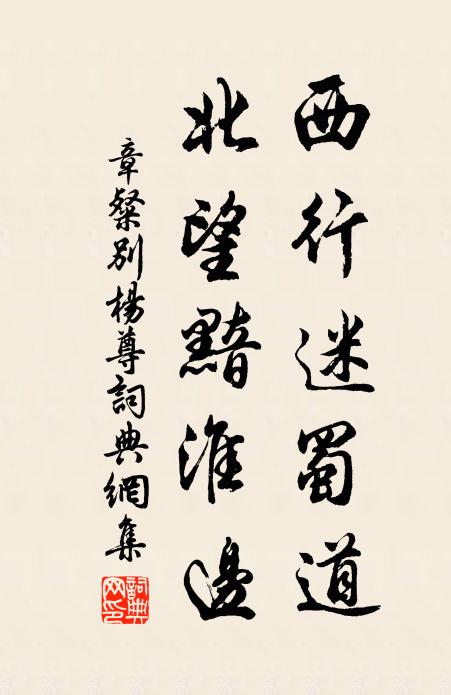 西行迷蜀道
北望黯淮邊
章粲別楊尊詞典網集
詞典網印